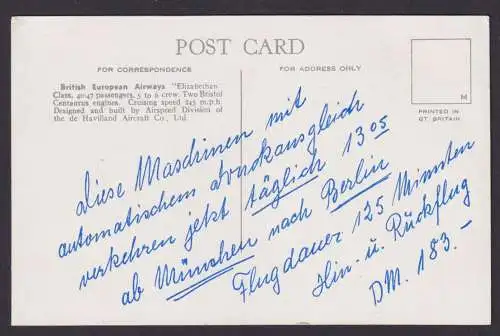 POST CARD
FOR CORRESPONDENCE
FOR ADDRESS ONLY
British European Airways "Elizabethan"
Class, 40/47 passengers, 5 to 6 crew. Two Bristol
Centaurus engines. Cruising speed 245 m.p.h.
Designed and built by Airspeed Division of
the de Havilland Aircraft Co., Ltd.
M
PRINTED IN
GT BRITAIN
Diese Maschinen mit
automatischem Druckausgleich
verkehren jetzt täglich 13 05
ab München nach Berlin
Flugdauer 125 Minuten
Hin- u. Rückflug
DM. 183.-